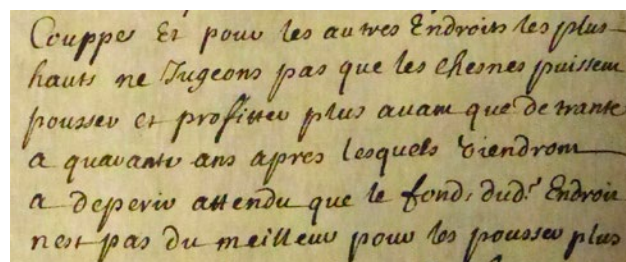 Couppes Et pour les autres Endroits les plus
hauts ne Jugeons pas que les chesnes puissent
pousser et profitter plus auant que de trante
a quarante ans apres lesquels viendront
a deperir attendu que le fond, dud.t Endroit
nest pas du meilleur pour les pousser plus